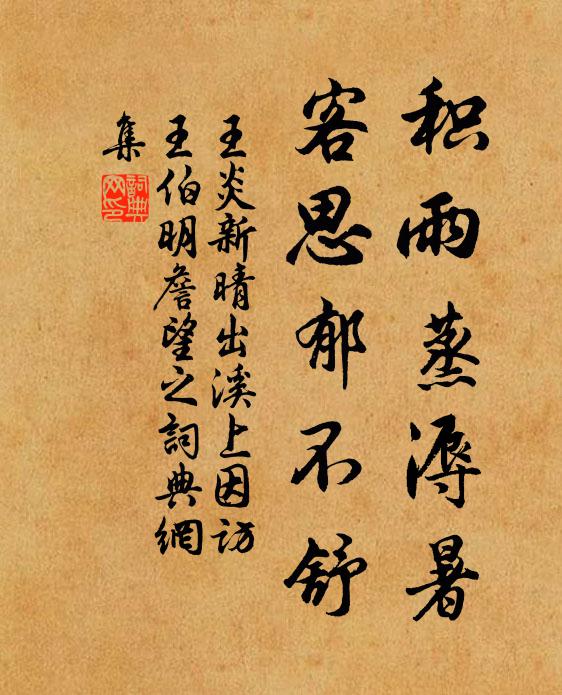 积雨蒸溽暑
客思郁不舒
王炎新晴出溪上因访
王伯明詹望之词典網
集
詞典
网印